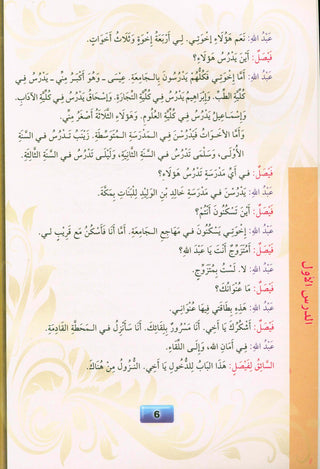 عَبْدُ اللهِ: نَعَم هَؤُلَاءِ إِخْوَتِي. لِي أَرْبَعَةُ إِخْوَةٍ وَثَلَاثُ أَخَوَاتٍ.
فَيْصَلٌ: أَيْنَ يَدْرُسُ هَؤُلَاءِ؟
عَبْدُ اللهِ: أَمَّا إِخْوَتِي فَكُلُّهُمْ يَدْرُسُونَ بِالْجَامِعَةِ. عِيسَى - وَهُوَ أَكْبَرُ مِنِّي - يَدْرُسُ فِي
كُلِّيَّةِ الطِّبِّ. وَإِبْرَاهِيمُ يَدْرُسُ فِي كُلِّيَّةِ التِّجَارَةِ. وَإِسْحَاقُ يَدْرُسُ فِي كُلِّيَّةِ الآدَابِ.
وَإِسْمَاعِيلُ يَدْرُسُ فِي كُلِّيَّةِ الْعُلُومِ. وَهَؤُلَاءِ الثَّلَاثَةُ أَصْغَرُ مِنِّي.
وَأَمَّا الأَخَوَاتُ فَيَدْرُسْنَ فِي الْمَدْرَسَةِ الْمُتَوَسِّطَةِ. زَيْنَبُ تَدْرُسُ فِي السَّنَةِ
الأُولَى، وَسَلْمَى تَدْرُسُ فِي السَّنَةِ الثَّانِيَةِ، وَلَيْلَى تَدْرُسُ فِي السَّنَةِ الثَّالِثَةِ.
فَيْصَلٌ: فِي أَيِّ مَدْرَسَةٍ تَدْرُسُ هَؤُلَاءِ؟
عَبْدُ اللهِ: يَدْرُسْنَ فِي مَدْرَسَةِ خَالِدِ بْنِ الْوَلِيدِ لِلْبَنَاتِ بِمَكَّةَ.
فَيْصَلٌ: أَيْنَ تَسْكُنُونَ أَنْتُمْ؟
عَبْدُ اللهِ: إِخْوَتِي يَسْكُنُونَ فِي مَهَاجِعِ الْجَامِعَةِ. أَمَّا أَنَا فَأَسْكُنُ مَعَ قَرِيبٍ لِي.
فَيْصَلٌ: أَمُتَزَوِّجٌ أَنْتَ يَا عَبْدَ اللهِ؟
عَبْدُ اللهِ: لَا. لَسْتُ بِمُتَزَوِّجٍ.
فَيْصَلٌ: مَا عُنْوَانُكَ؟
عَبْدُ اللهِ: هَذِهِ بِطَاقَتِي فِيهَا عُنْوَانِي.
فَيْصَلٌ: أَشْكُرُكَ يَا أَخِي. أَنَا مَسْرُورٌ بِلِقَائِكَ. أَنَا سَأَنْزِلُ فِي الْمَحَطَّةِ الْقَادِمَةِ.
عَبْدُ اللهِ: فِي أَمَانِ اللهِ، وَإِلَى اللِّقَاءِ.
السَّائِقُ لِفَيْصَلٍ: هَذَا الْبَابُ لِلدُّخُولِ يَا أَخِي. النُّزُولُ مِنْ هُنَاكَ.
الدرس الأول
6